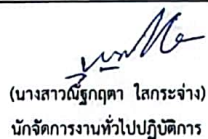 (นางสาวณัฐกฤตา ใสกระจ่าง)
นักจัดการงานทั่วไปปฏิบัติการ